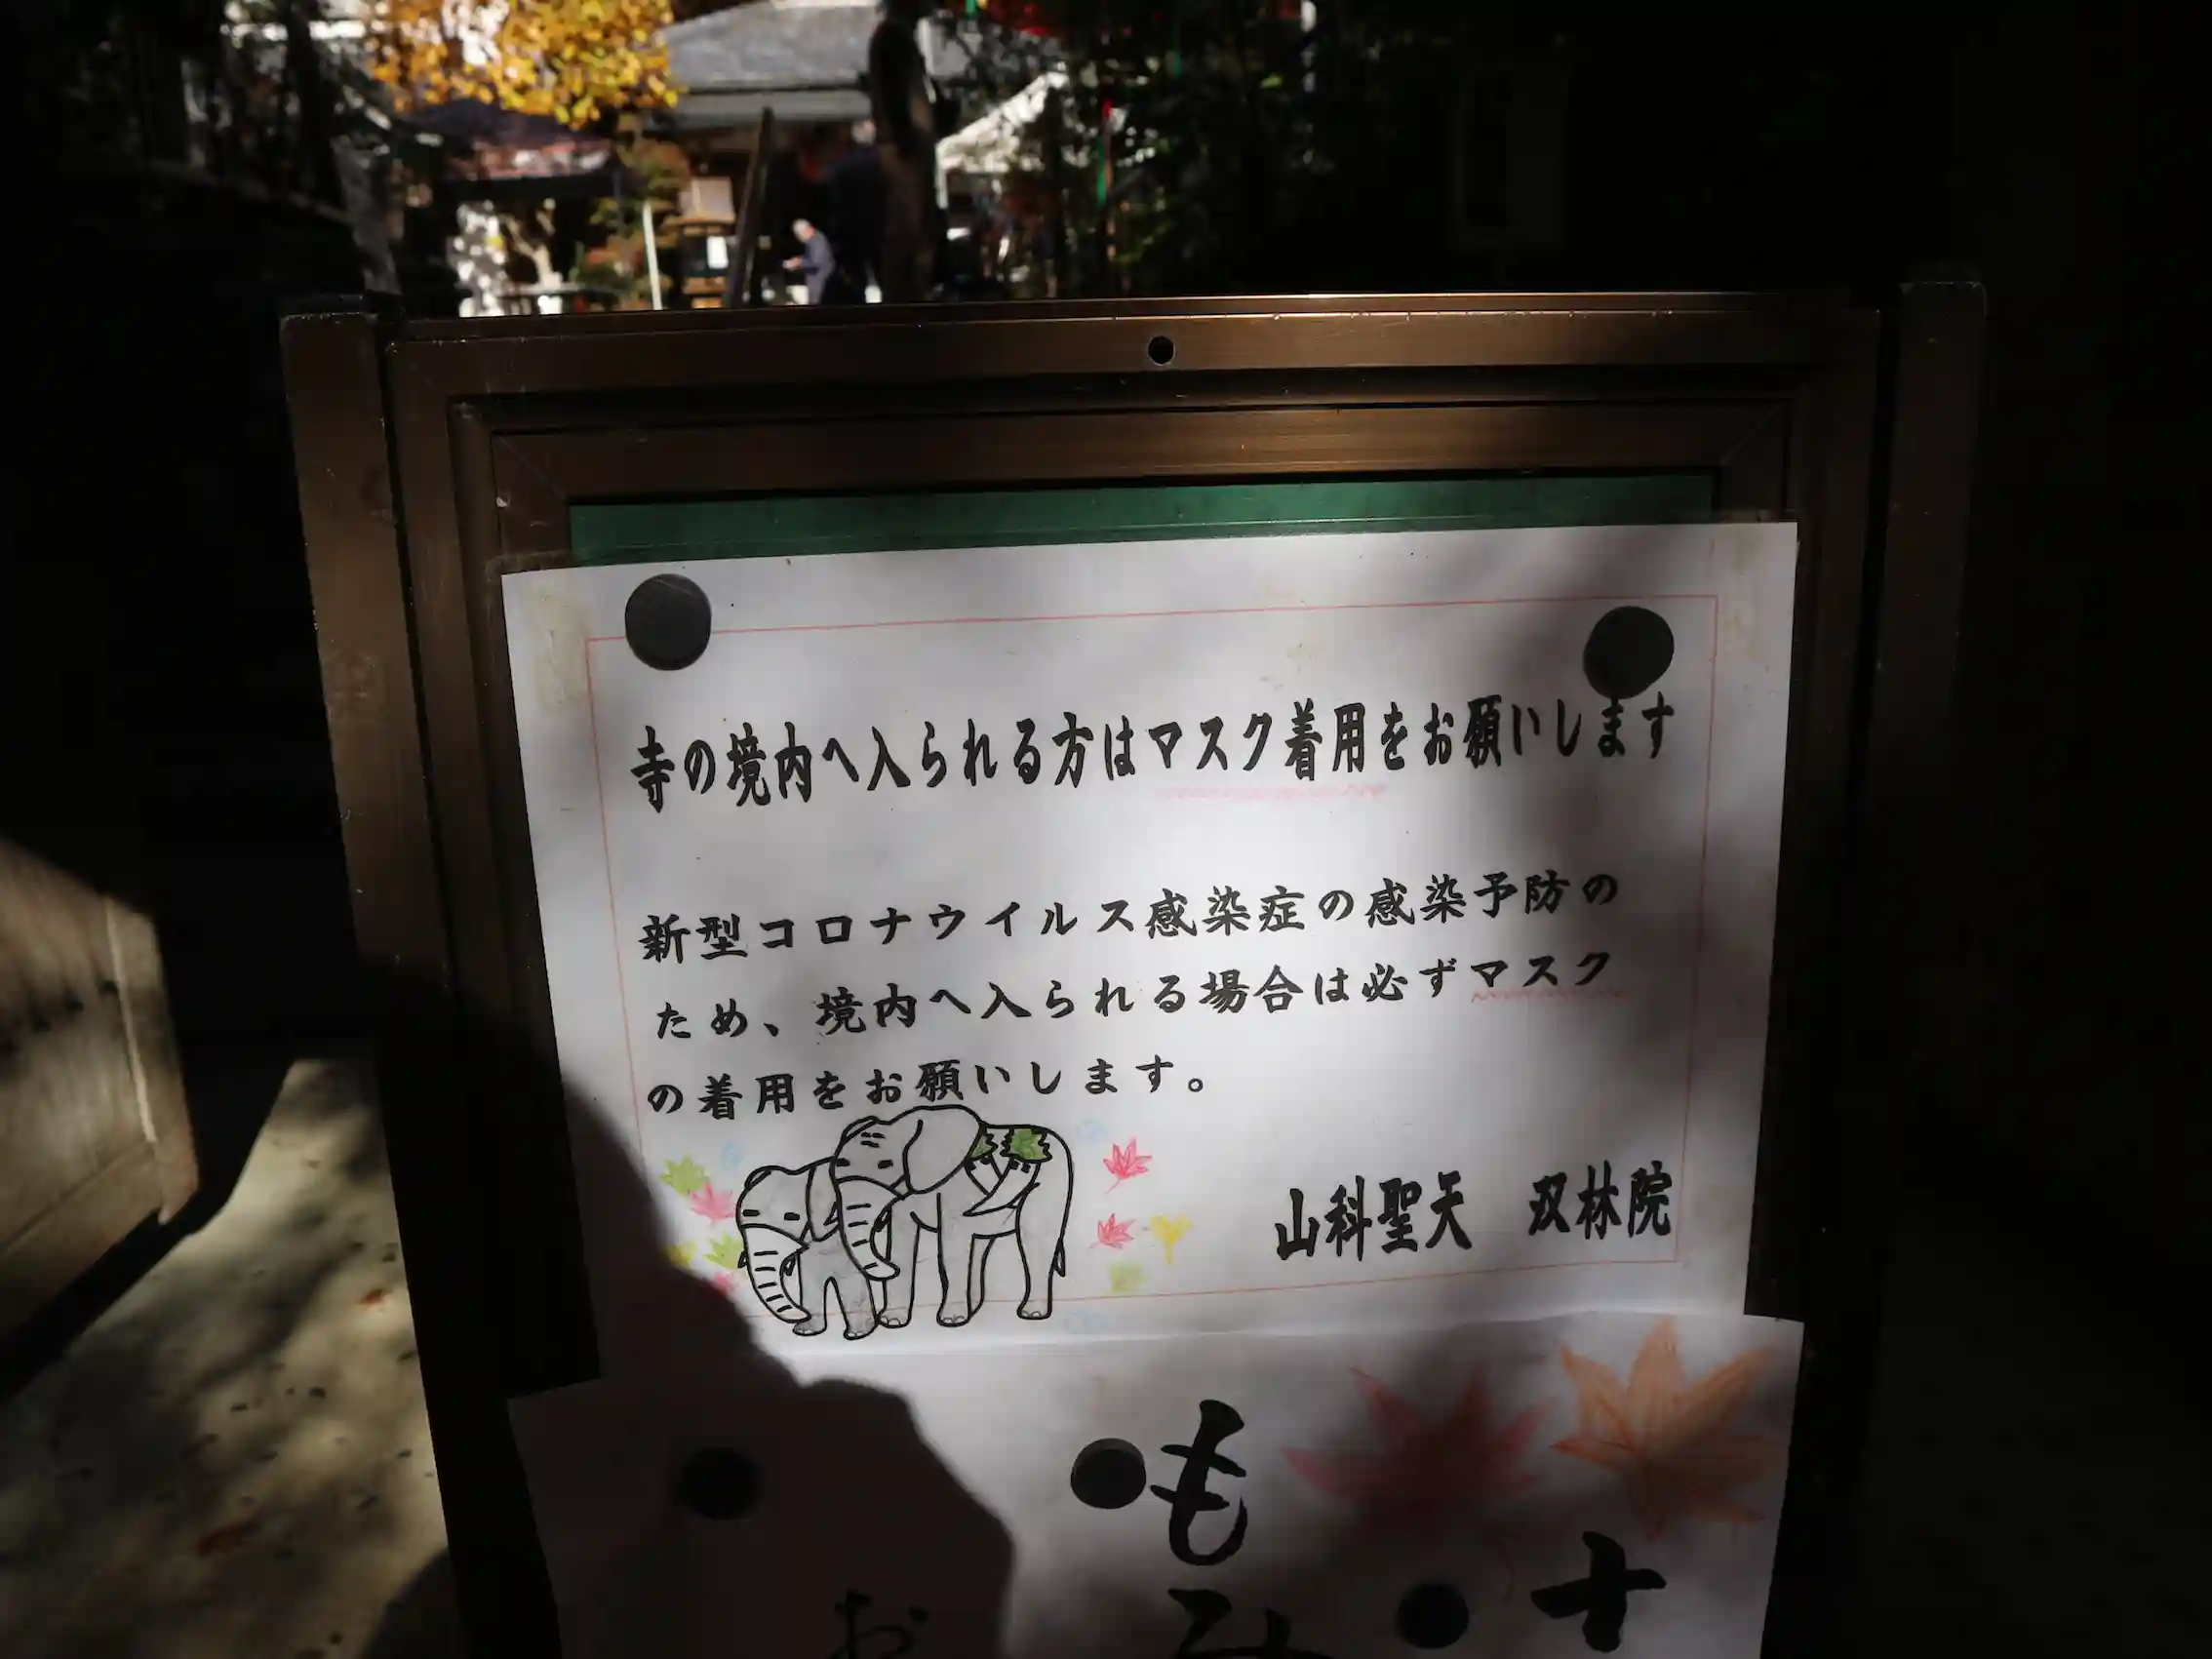 寺の境内へ入られる方はマスク着用をお願いします
新型コロナウイルス感染症の感染予防の
ため、境内へ入られる場合は必ずマスク
の着用をお願いします。
山科聖天 双林院
も